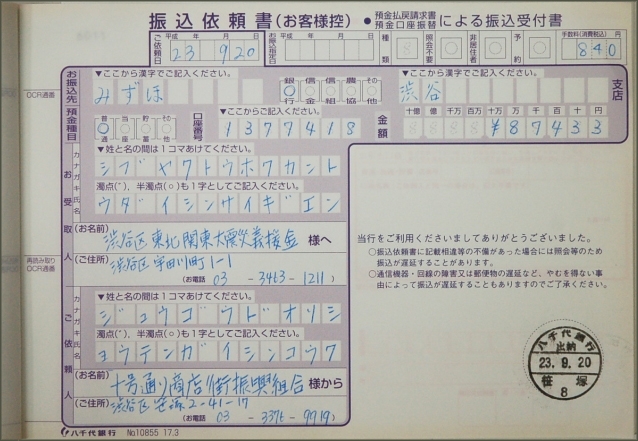 振込依頼書(お客様控)・預金払戻請求書 預金口座振替による振込受付書
ご依頼日 平成 年 月 日 23 9 20
お振込指定日 平成 年 月 日
種類 照会不要 非居住者 予約
手数料(消費税込) 円 840
OCR通番
お振込先
▼ここから漢字でご記入ください。
みずほ
銀行 信金 信組 農協 その他
▼ここから漢字でご記入ください。
渋谷 支店
預金種目 普通 当座 貯蓄 その他
口座番号 ▼ここからご記入ください。
1377418
金額 十億 億 千万 百万 十万 万 千 百 十 円
¥87433
お受取人
カナガキ氏名
▼姓と名の間は1コマあけてください。
シブヤクトウホクカント
濁点(゛)、半濁点(○)も1字としてご記入ください。
ウダイシンサイギエン
(お名前)
渋谷区東北関東大震災義援金 様へ
(ご住所)
渋谷区宇田川町1-1
(お電話 03-3463-1211)
再読み取りOCR通番
ご依頼人
カナガキ氏名
▼姓と名の間は1コマあけてください。
ジュウゴウドオリシ
濁点(゛)、半濁点(○)も1字としてご記入ください。
ヨウテンガイシンコウク
(お名前)
十号通り商店街振興組合 様から
(ご住所)
渋谷区笹塚2-41-17
(お電話 03-3376-9719)
当行をご利用くださいましてありがとうございました。
○振込依頼書に記載相違等の不備があった場合には照会等のため
振込が遅延することがあります。
○通信機器・回線の障害又は郵便物の遅延など、やむを得ない事
由によって振込が遅延することもありますのでご了承ください。
八千代銀行
出納
23.9.20
笹塚
8
八千代銀行 No10855 17.3